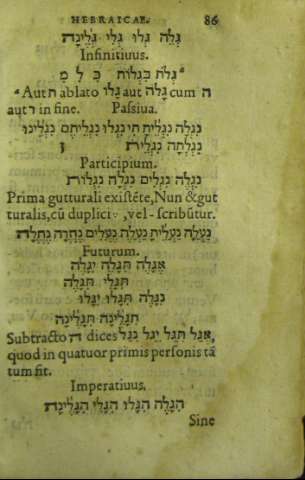 HEBRAICAE. 86
גְּלֵה גְּלוּ גְּלִי גְּלֶינָה
Infinitiuus.
גְּלֹת בִּגְלוֹת כְּ לְ מִ
Aut ח ablato גְּלוֹ aut גָּלֹה cum ה
aut ו in fine. Passiua.
נִגְלָה נִגְלֵיתָ
Participium.
נִגְלֶה נִגְלִים נִגְלָה נִגְלוֹת
Prima gutturali existẽte, Nun & gut
turalis, cũ duplici , vel - scribũtur.
Futurum.
אֶגָּלֶה תִּגָּלֶה יִגָּלֶה
תִּגָּלִי תִּגָּלֶה
נִגָּלֶה תִּגָּלוּ יִגָּלוּ
תִּגָּלֶינָה תִּגָּלֶינָה
Subtracto ה dices אֶגָּל תִּגָּל יִגָּל נִגָּל
quod in quatuor primis personis tã
tum fit.
Imperatiuus.
הִגָּלֵה הִגָּלוּ הִגָּלִי הִגָּלֶינָה
Sine